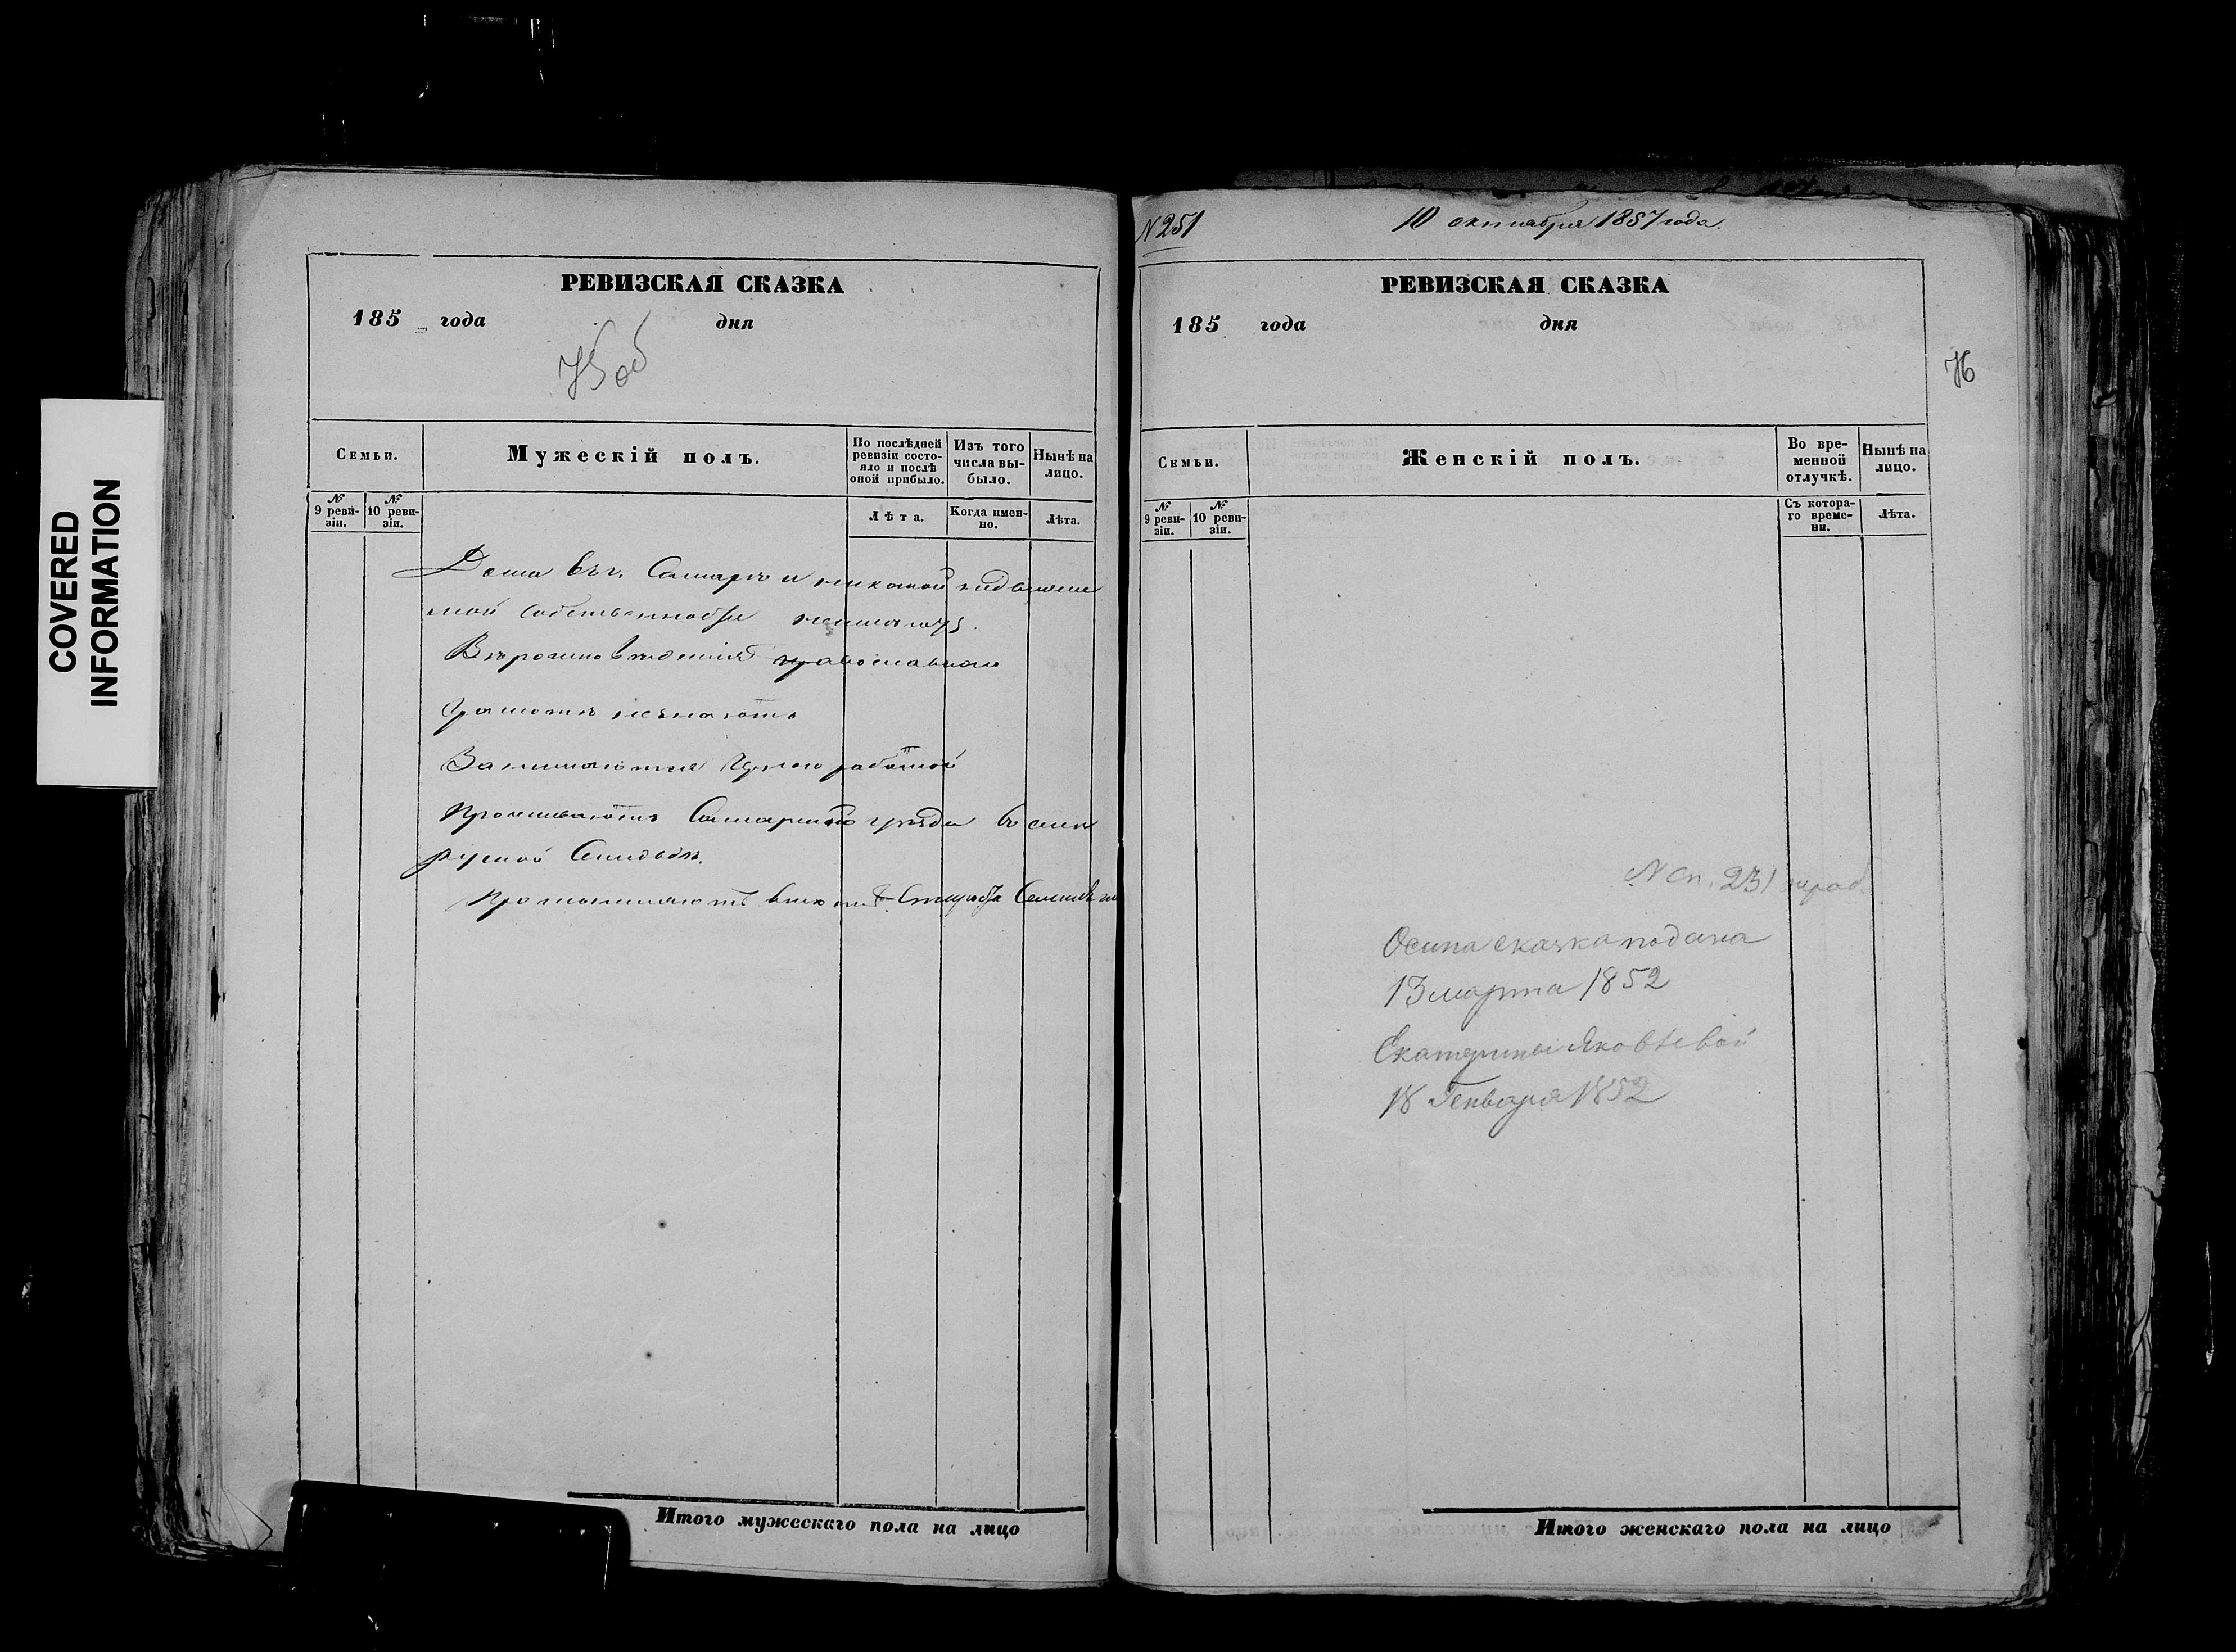 COVERED
INFORMATION
РЕВИЗСКАЯ СКАЗКА
185 года дня
75 об
Семьи.
Мужескій полъ.
По послѣдней ревизіи состояло и послѣ оной прибыло.
Изъ того числа выбыло.
Нынѣ на лицо.
№ 9 ревизіи.
№ 10 ревизіи.
Лѣта.
Когда именно.
Лѣта.
Дома въ г. Самарѣ и никакой недвижи
мой собственности неимѣютъ.
Вѣроисповѣденія православнаго
Грамотѣ незнаютъ
Занимаются чорною работой
Проживаютъ Самарскаго уѣзда
Итого мужескаго пола на лицо
N 251
10 октября 1857 года.
РЕВИЗСКАЯ СКАЗКА
185 года дня
76
Семьи.
Женскій полъ.
Во временной отлучкѣ.
Нынѣ на лицо.
№ 9 ревизіи.
№ 10 ревизіи.
Съ котораго времени.
Лѣта.
N сп. 231
Осипа сказка подана
13 марта 1852
Екатерины Яковлевой
18 Генваря 1852
Итого женскаго пола на лицо